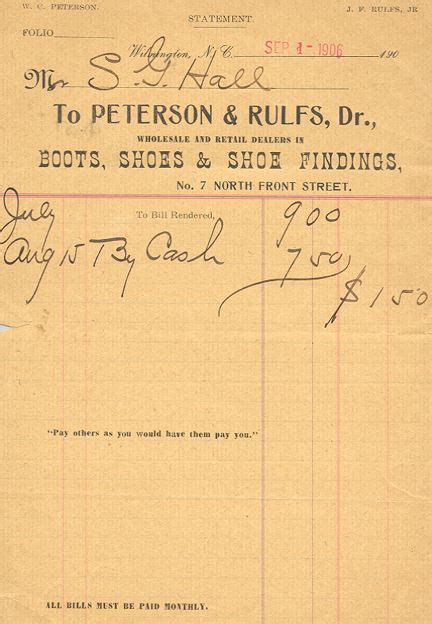 W. C. PETERSON. J. F. RULFS, JR
STATEMENT.
FOLIO
Wilmington, N. C. SEP 1- 1906 190
Mr S. G. Hall
To PETERSON & RULFS, Dr.,
WHOLESALE AND RETAIL DEALERS IN
BOOTS, SHOES & SHOE FINDINGS,
No. 7 NORTH FRONT STREET.
July To Bill Rendered, 9 00
Aug 15 By Cash 7 50
$ 1 50
"Pay others as you would have them pay you."
ALL BILLS MUST BE PAID MONTHLY.